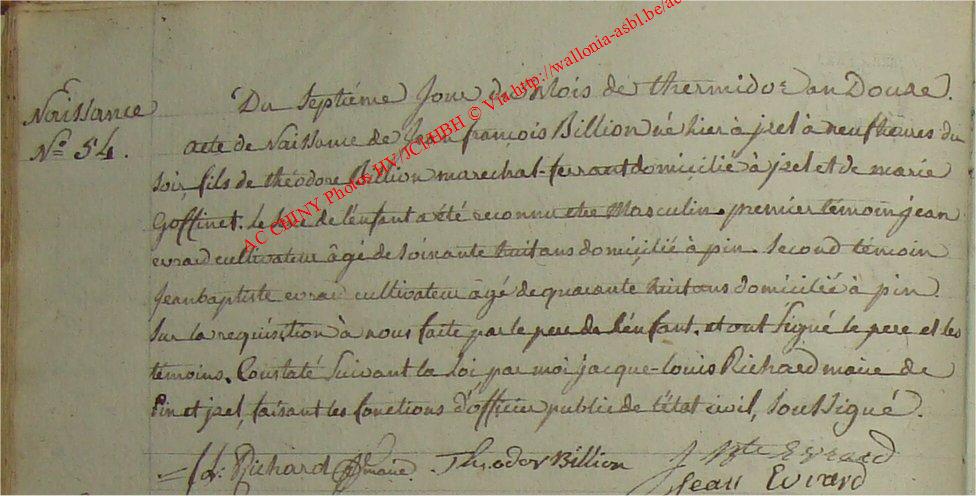 Naissance
N° 54.
Du Septiéme Jour du Mois de thermidor an Douze.
acte de Naissance de Jean françois Billion né hier à jzel à neuf heures du
soir, fils de théodore Billion marechal-ferrant domicilié à jzel et de marie
Goffinet. Le sexe de l'enfant a été reconnu etre Masculin. premier témoin jean
evrard cultivateur âgé de soixante huit ans domicilié à pin. second témoin
Jean baptiste evrard cultivateur âgé de quarante huit ans domicilié à pin.
Sur la requisition à nous faite par le pere de l'enfant. et ont signé le pere et les
témoins. Constaté Suivant la Loi par moi jacque-louis Richard maire de
Pin et jzel, faisant les fonctions d'officier public de l'état civil, Soussigné.
J.L. Richard maire. Théodor Billion J Bte Evrard
Jean Evrard
AC CHINY Photos HV/JCl-HBH © Via http://wallonia-asbl.be/ac